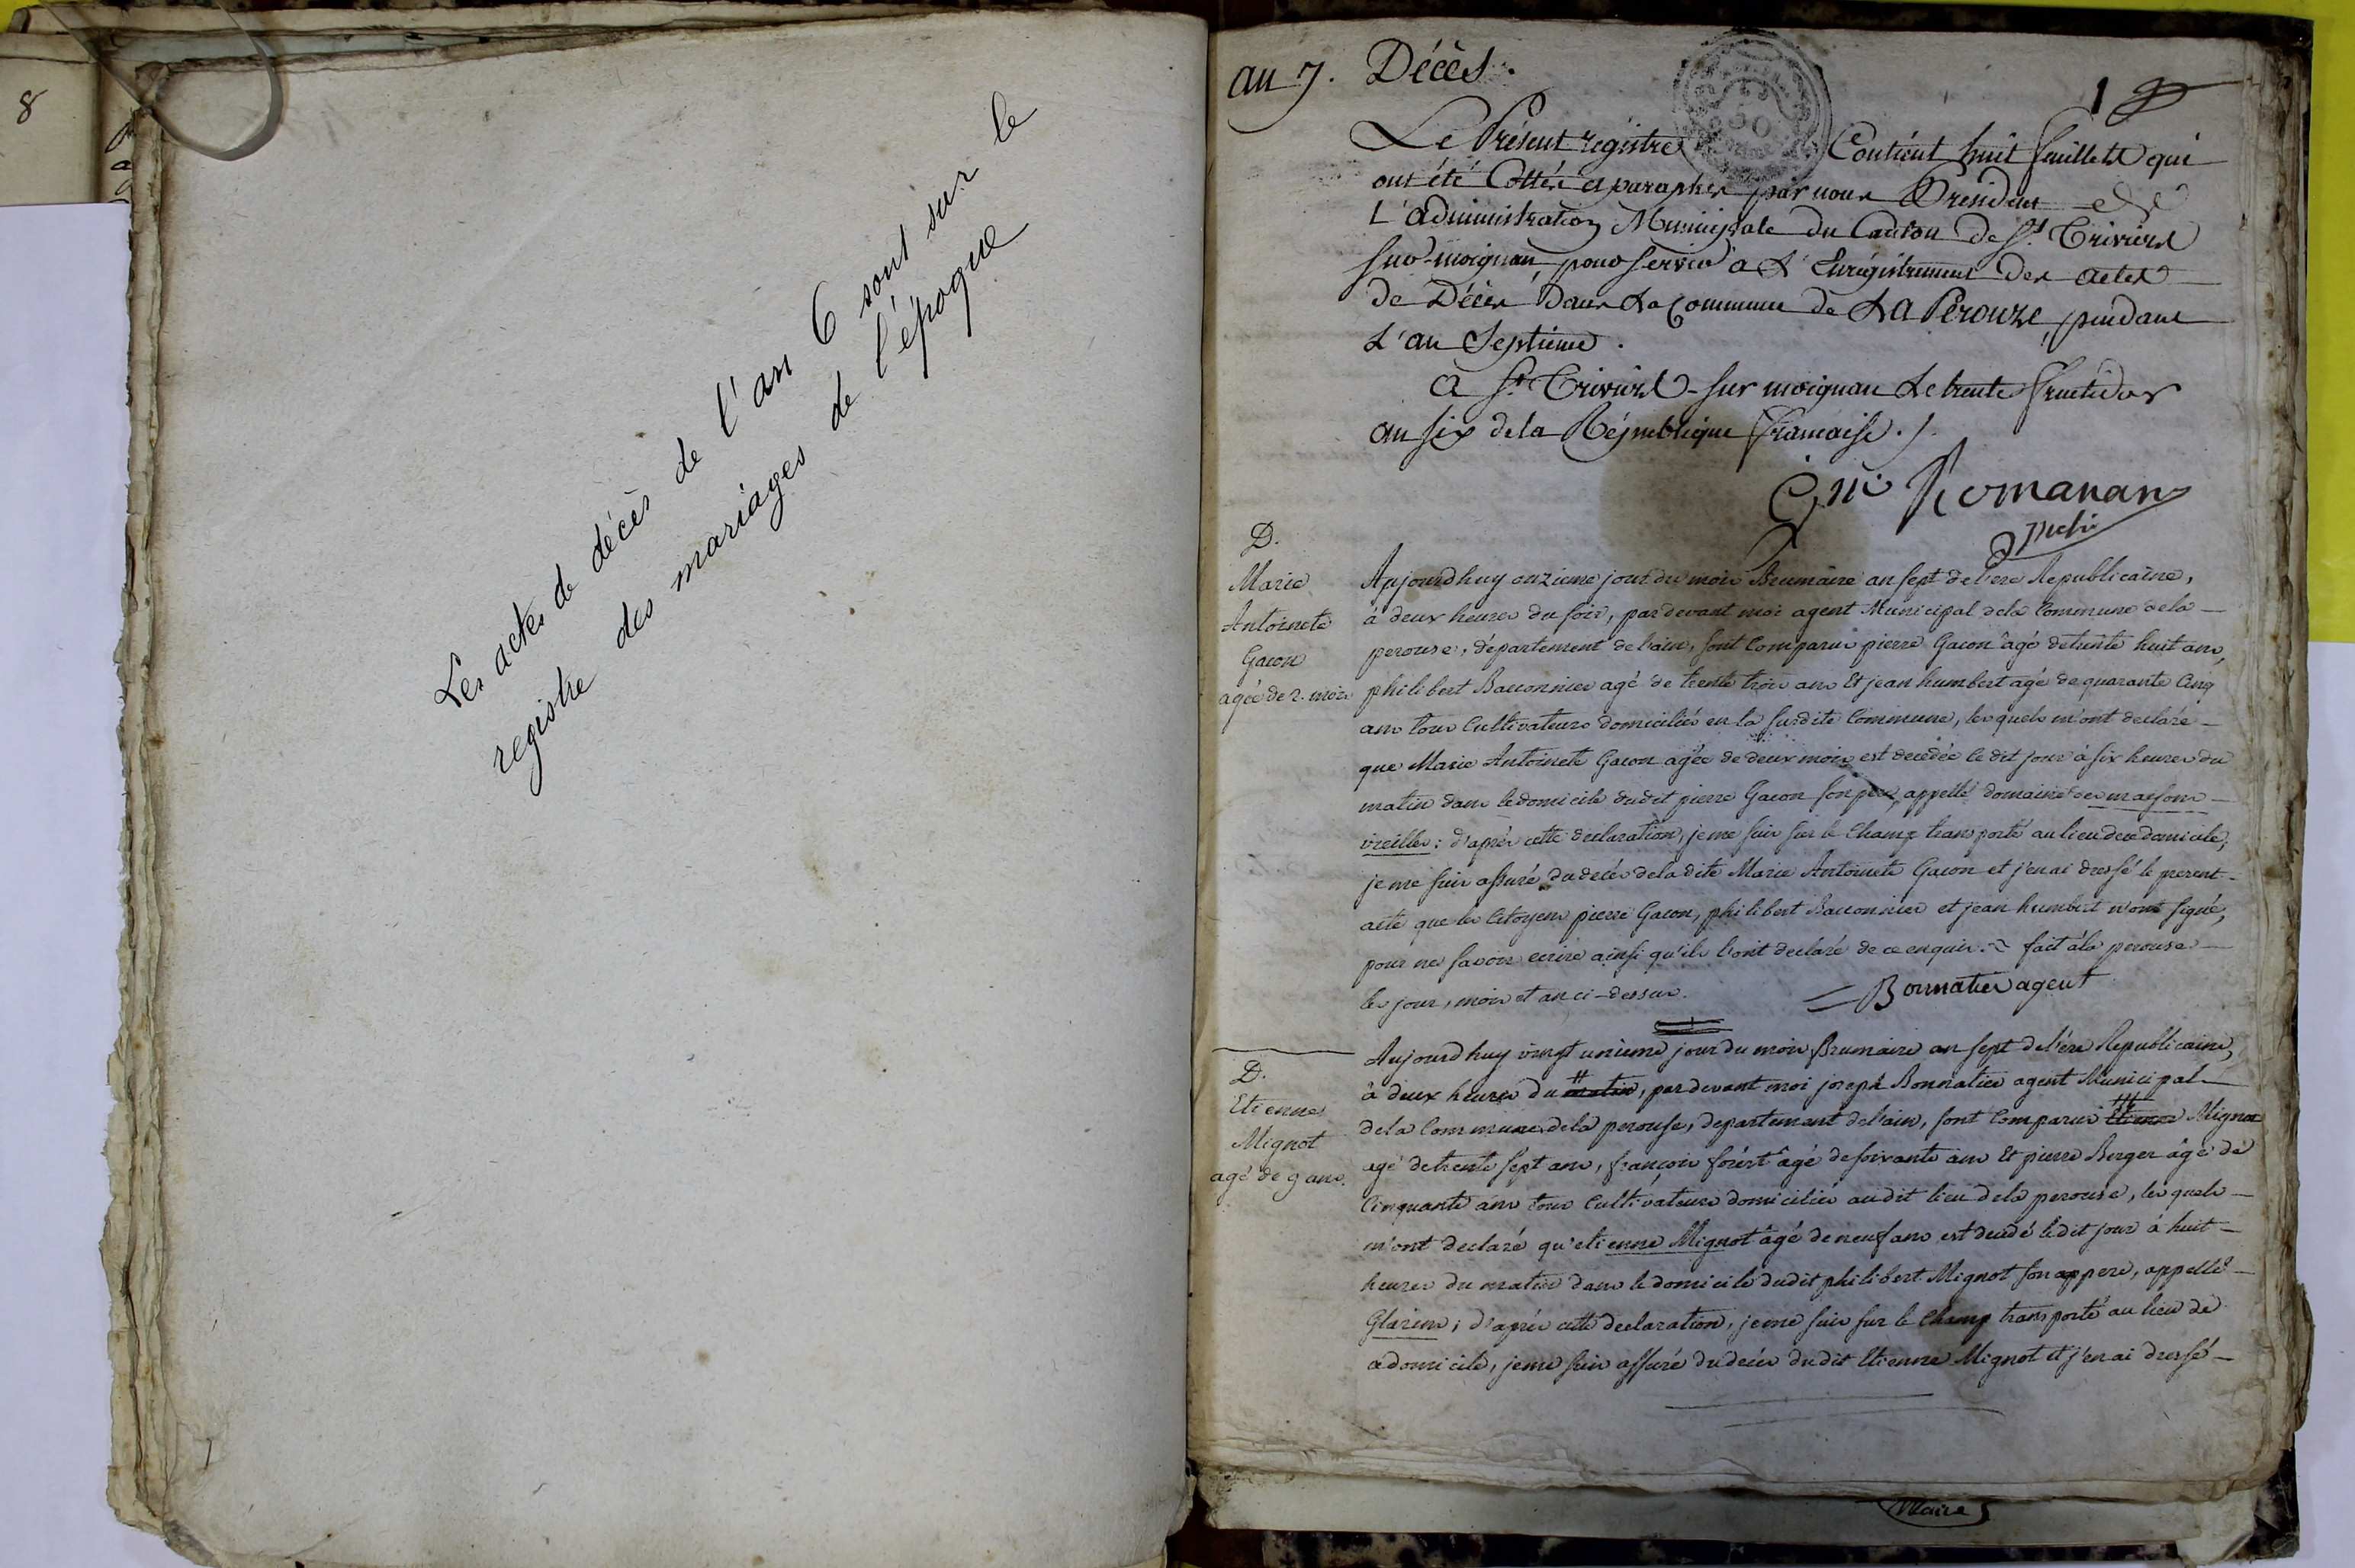 8
Les actes de décès de l'an 6 sont sur le
registre des mariages de l'époque
an 7. Décès.
1
Le Présent registre Contient huit feuillets qui
ont été Cottés et paraphés par nous Président de
L'administration Municipale du Canton de St. Triviers
sur-moignan, pour servir à L'Enregistrement des actes
de Décès Dans La Commune de LA Pérouze, pendant
L'an Septième.
à St. Triviers-sur moignan Le trente fructidor
an six de la République française./.
Romanans
D.
Marie
Antoinete
Gacon
agée de 2. mois
Aujourdhuy onzieme jour du mois Brumaire an sept de l'ere Republicaine,
à deux heures du soir, pardevant moi agent Municipal de la Commune de la
perouse, département de l'ain, sont Comparus pierre Gacon âgé de trente huit ans,
philibert Bacconnier agé de trente trois ans Et jean humbert agé de quarante Cinq
ans tous Cultivateurs domiciliés en la susdite Commune, lesquels m'ont declaré
que Marie Antoinete Gacon agée de deux mois est decedée le dit jour à six heures du
matin dans le domicile dudit pierre Gacon son pere, appellé domaine des maisons
vieilles : d'après cette declaration, je me suis sur le Champ transporté au lieu de ce domicile,
je me suis assuré du decès de la dite Marie Antoinete Gacon et j'en ai dressé le present
acte que les Citoyens pierre Gacon, philibert Bacconnier et jean humbert n'ont signé,
pour ne savoir ecrire ainsi qu'ils l'ont declaré de ce enquis. fait à la perouse
les jour, mois et an ci-dessus.
Bonnatier agent
D.
Etienne
Mignot
agé de 9 ans.
Aujourdhuy vingt unieme jour du mois Brumaire an sept de l'ère Republicaine,
à deux heures du matin, pardevant moi joseph Bonnatier agent Municipal
de la Commune de la perouse, departement de l'ain, sont Comparus Etienne Mignot
agé de trente sept ans, françois forést âgé de soixante ans Et pierre Berger âgé de
Cinquante ans tous Cultivateurs domiciliés audit lieu de la perouse, lesquels
m'ont declaré qu'etienne Mignot âgé de neuf ans est decedé le dit jour à huit
heures du matin dans le domicile dudit philibert Mignot son pere, appellé
Glareins ; d'après cette declaration, je me suis sur le Champ transporté au lieu de
ce domicile, je me suis assuré du decès dudit Etienne Mignot et j'en ai dressé
Maire